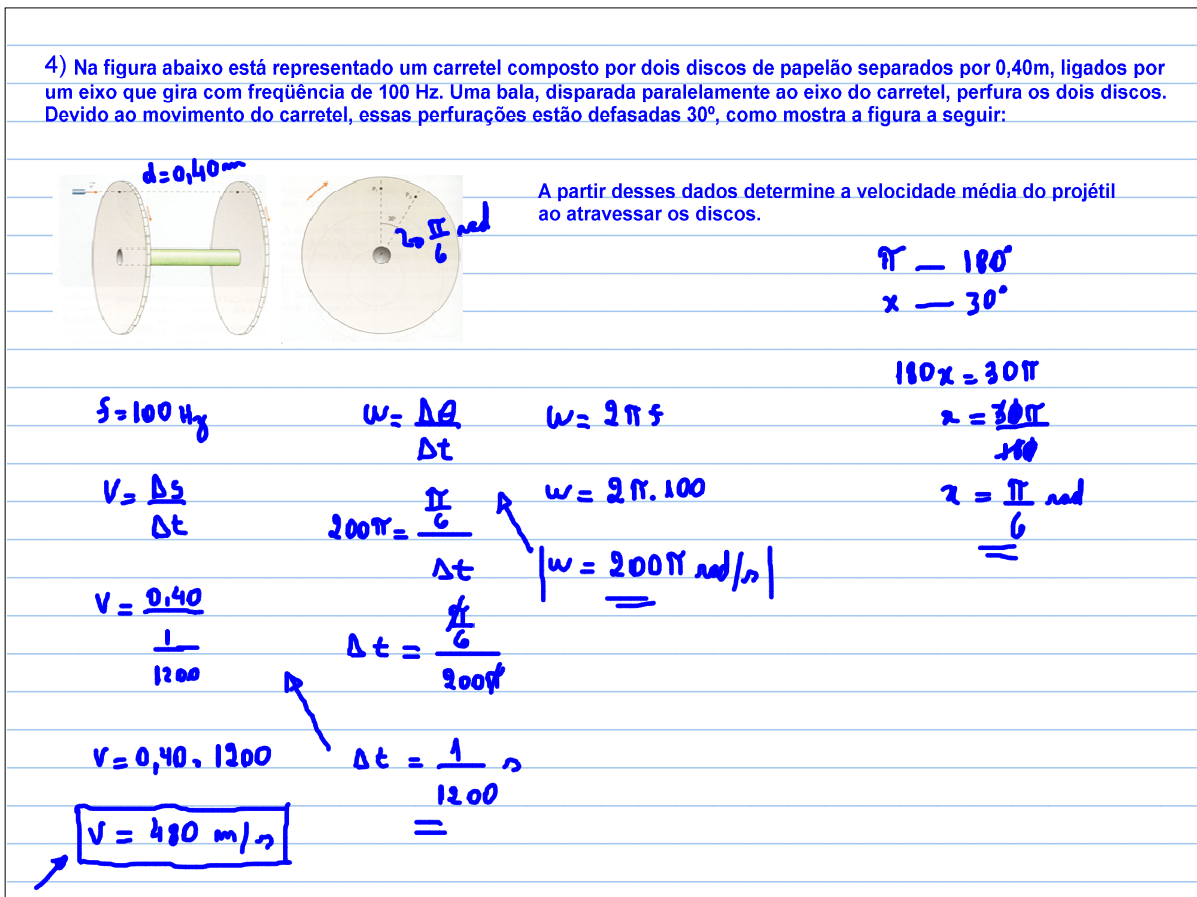 4) Na figura abaixo está representado um carretel composto por dois discos de papelão separados por 0,40m, ligados por
um eixo que gira com freqüência de 100 Hz. Uma bala, disparada paralelamente ao eixo do carretel, perfura os dois discos.
Devido ao movimento do carretel, essas perfurações estão defasadas 30º, como mostra a figura a seguir:
d=0,40m
30°
π/6 rad
A partir desses dados determine a velocidade média do projétil
ao atravessar os discos.
π — 180°
x — 30°
180x = 30π
x = 30π/180
x = π/6 rad
f=100 Hz
V = Δs/Δt
V = 0,40/(1/1200)
V = 0,40 . 1200
V = 480 m/s
ω = Δθ/Δt
200π = (π/6)/Δt
Δt = (π/6)/200π
Δt = 1/1200 s
ω = 2πf
ω = 2π.100
ω = 200π rad/s